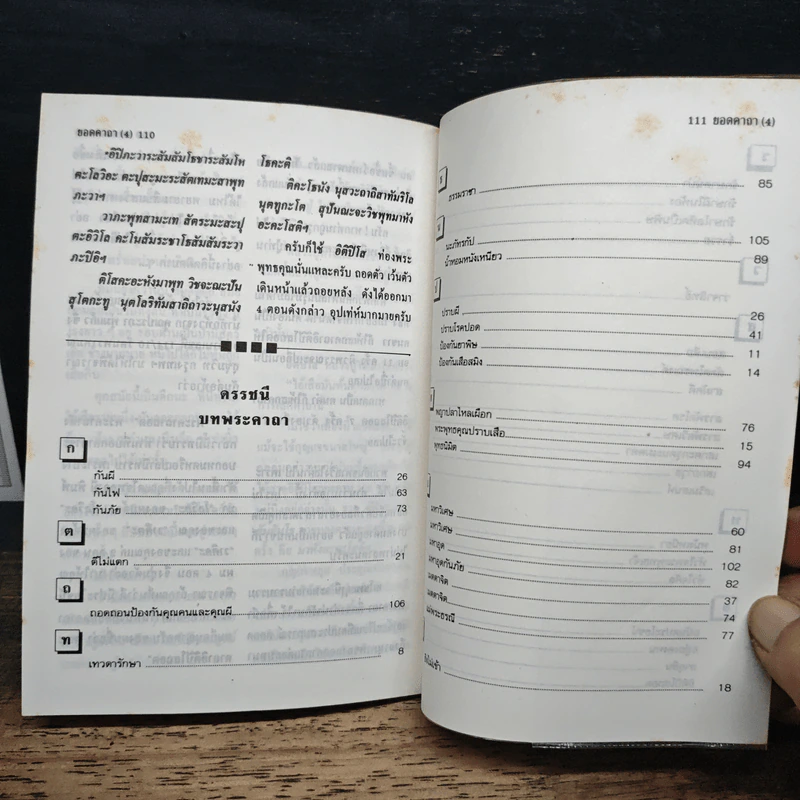 ยอดคาถา (4) 110
"อิปิภะวาระสัมสัมโธชาระสัมโห
ตะโลวิอะ ตะปุสะมะระสัตเทมะสาพุท
ภะวาฯ
วาภะพุทสามะเท สัตระมะสะปุ
ตะอิวิโล คะโนสัมระชาโธสัมสัมระวา
ภะปิอิฯ
ติโสคะอะหังมาพุท วิชจะณะปัน
สุโตกะทู นุตโลริทัมสาถิถาวะนุสนัง
โธคะติ
ติคะโธนัง นุสวะถาถิสาทัมริโล
นุตฑูกะโต สุปันณะอะวิชพุทมาหัง
อะคะโสติฯ
ครับก็ใช้ อิติปิโส ท่องพระ
พุทธคุณนั่นแหละครับ ถอดตัว เว้นตัว
เดินหน้าแล้วถอยหลัง ดังได้ออกมา
4 ตอนดังกล่าว อุปเท่ห์มากมายครับ
ดรรชนี
บทพระคาถา
ก
กันผี 26
กันไฟ 63
กันภัย 73
ต
ตีไม่แตก 21
ถ
ถอดถอนป้องกันคุณคนและคุณผี 106
ท
เทวดารักษา 8
111 ยอดคาถา (4)
ธรรมราชา 85
นะภัทรกัป 105
น้ำหอมหนังเหนียว 89
ปราบผี 26
ปราบโรคปอด 41
ป้องกันยาพิษ 11
ป้องกันเสือสมิง 14
พญาปลาไหลเผือก 76
พระพุทธคุณปราบเสือ 15
พุทธนิมิต 94
มหาวิเศษ 60
มหาวิเศษ 81
มหาอุด 102
มหาอุดกันภัย 82
เมตตาจิต 37
เมตตาจิต 74
แม่พระธรณี 77
18